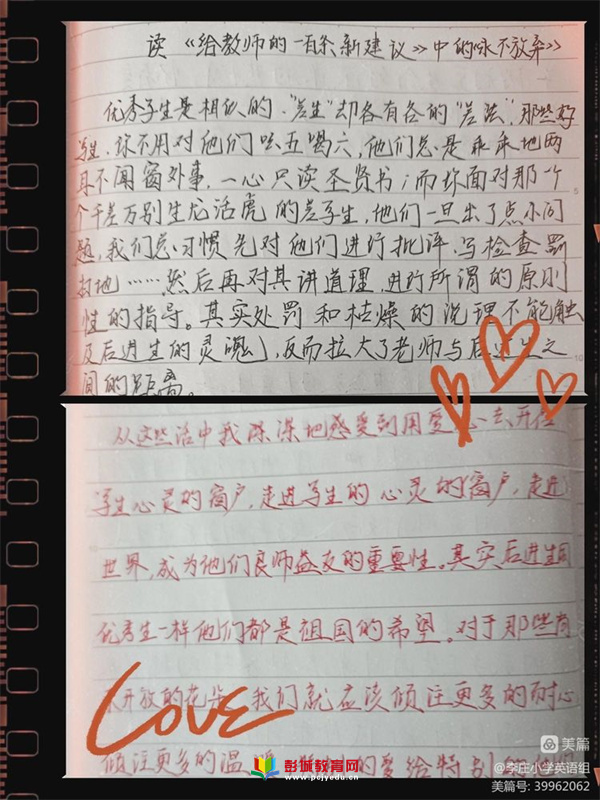 读《给教师的一百条新建议》中的《永不放弃》
优秀学生是相似的,"差生"却各有各的"差法",那些好
学生,你不用对他们吆五喝六,他们总是乖乖地两
耳不闻窗外事,一心只读圣贤书;而你面对那一个
个千差万别生龙活虎的差学生,他们一旦出了点小问
题,我们总习惯先对他们进行批评,写检查罚
扫地……然后再对其讲道理,进行所谓的原则
性的指导。其实处罚和枯燥的说理不能触
及后进生的灵魂,反而拉大了老师与后进生之
间的距离。
从这些话中我深深地感受到用爱心去开启
学生心灵的窗户,走进学生的心灵的窗户,走进
世界,成为他们良师益友的重要性。其实后进生同
优秀生一样他们都是祖国的希望。对于那些尚
开放的花朵,我们就应该倾注更多的耐心
倾注更多的温 的爱给特别
LOVE
彭城教育网
www.pcjyedu.com
美篇
@李庄小学英语组
美篇号: 39962062